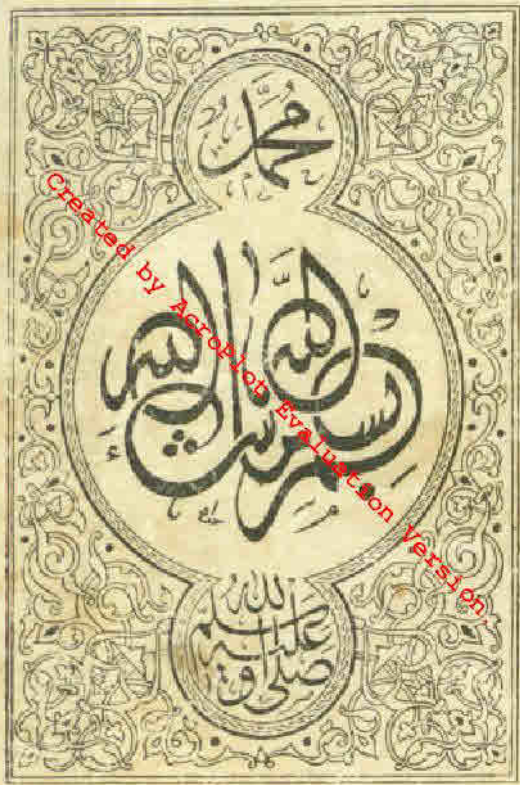 محمد
بسم الله شاء الله
صلى الله عليه وسلم
Created by AcroPlot Evaluation Version.